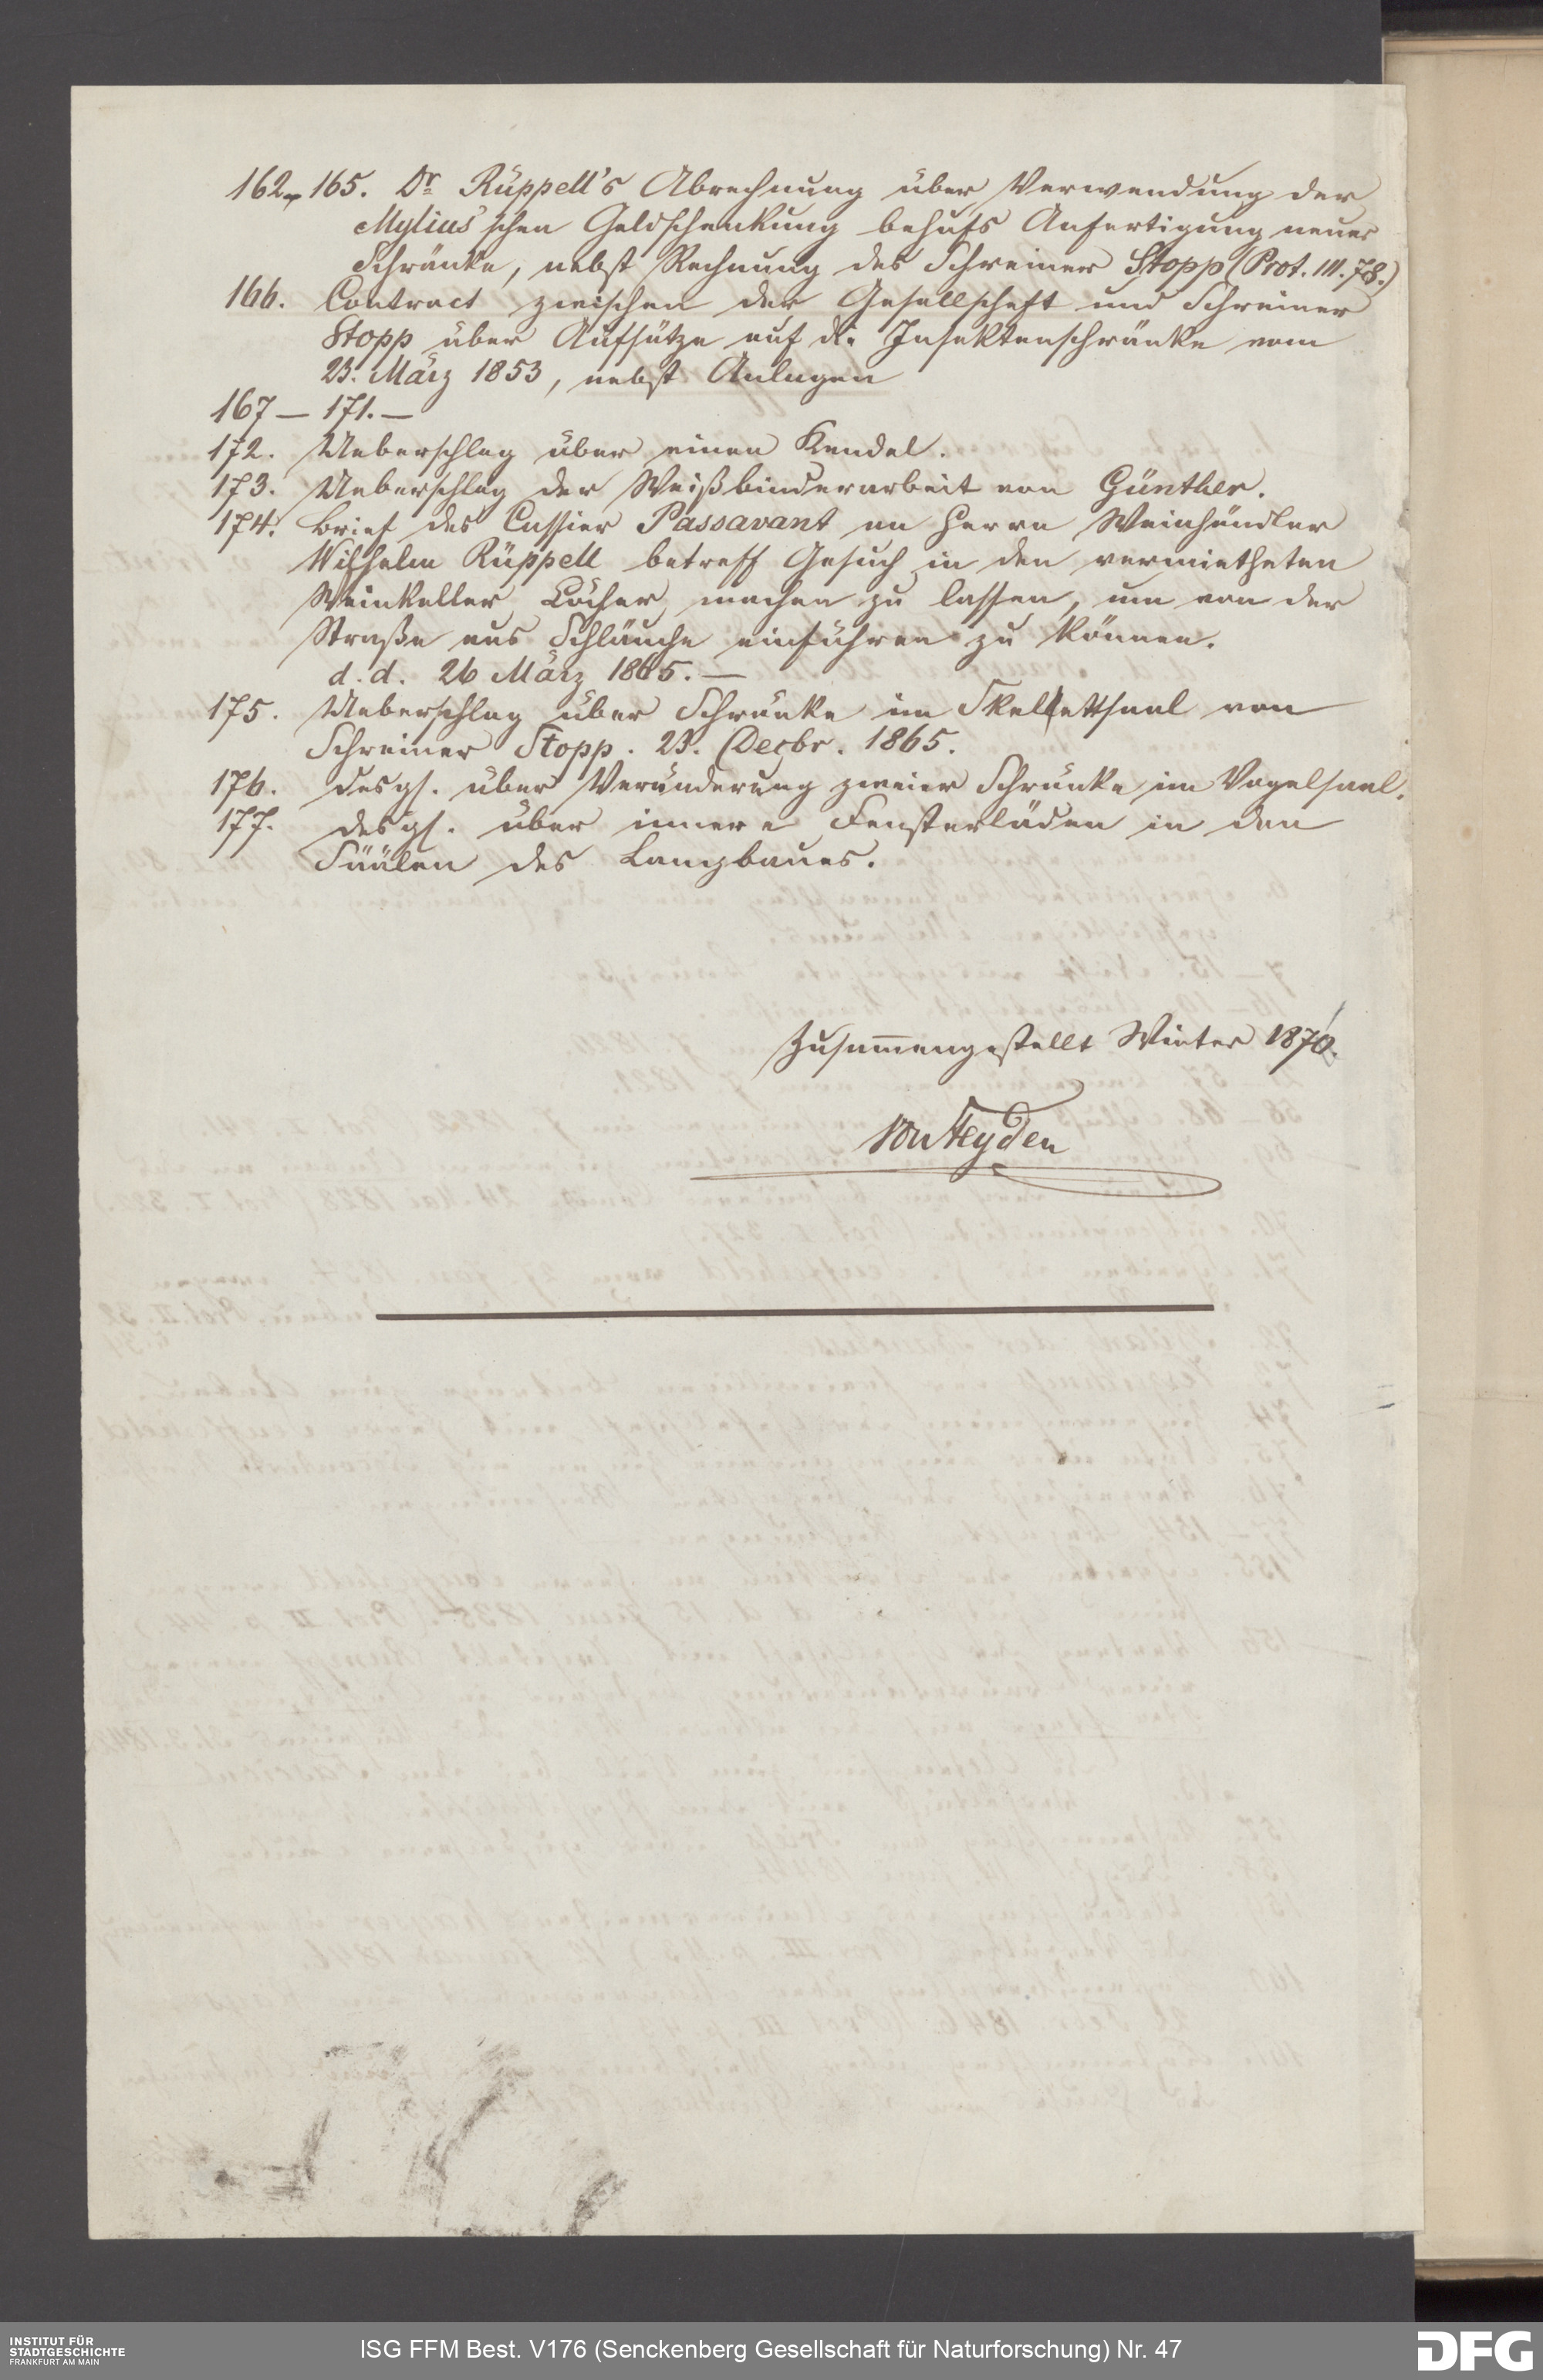 162–165. Dr Rüppell's Abrechnung über Verwendung der
Mylius'schen Geldschenkung behufs Anfertigung neuer
Schränke, nebst Rechnung des Schreiner Stopp (Prot. III. 78.)
166. Contract zwischen der Gesellschaft und Schreiner
Stopp über Aufsätze auf die Insektenschränke vom
23. März 1853, nebst Anlagen
167 — 171. —
172. Ueberschlag über einen Kendel.
173. Ueberschlag der Weißbinderarbeit von Günther.
174. Brief des Cassier Passavant an Herrn Weinhändler
Wilhelm Rüppell betreff Gesuch in den vermietheten
Weinkeller Löcher machen zu lassen, um von der
Straße aus Schläuche einführen zu können.
d. d. 26 März 1865. —
175. Ueberschlag über Schränke im Skelettsaal von
Schreiner Stopp. 23. Decbr. 1865.
176. desgl. über Veränderung zweier Schränke im Vogelsaal.
177. desgl. über innere Fensterläden in den
Säälen des Langbaues.
Zusammengestellt Winter 1870.
von Heyden
INSTITUT FÜR
STADTGESCHICHTE
FRANKFURT AM MAIN
ISG FFM Best. V176 (Senckenberg Gesellschaft für Naturforschung) Nr. 47
DFG